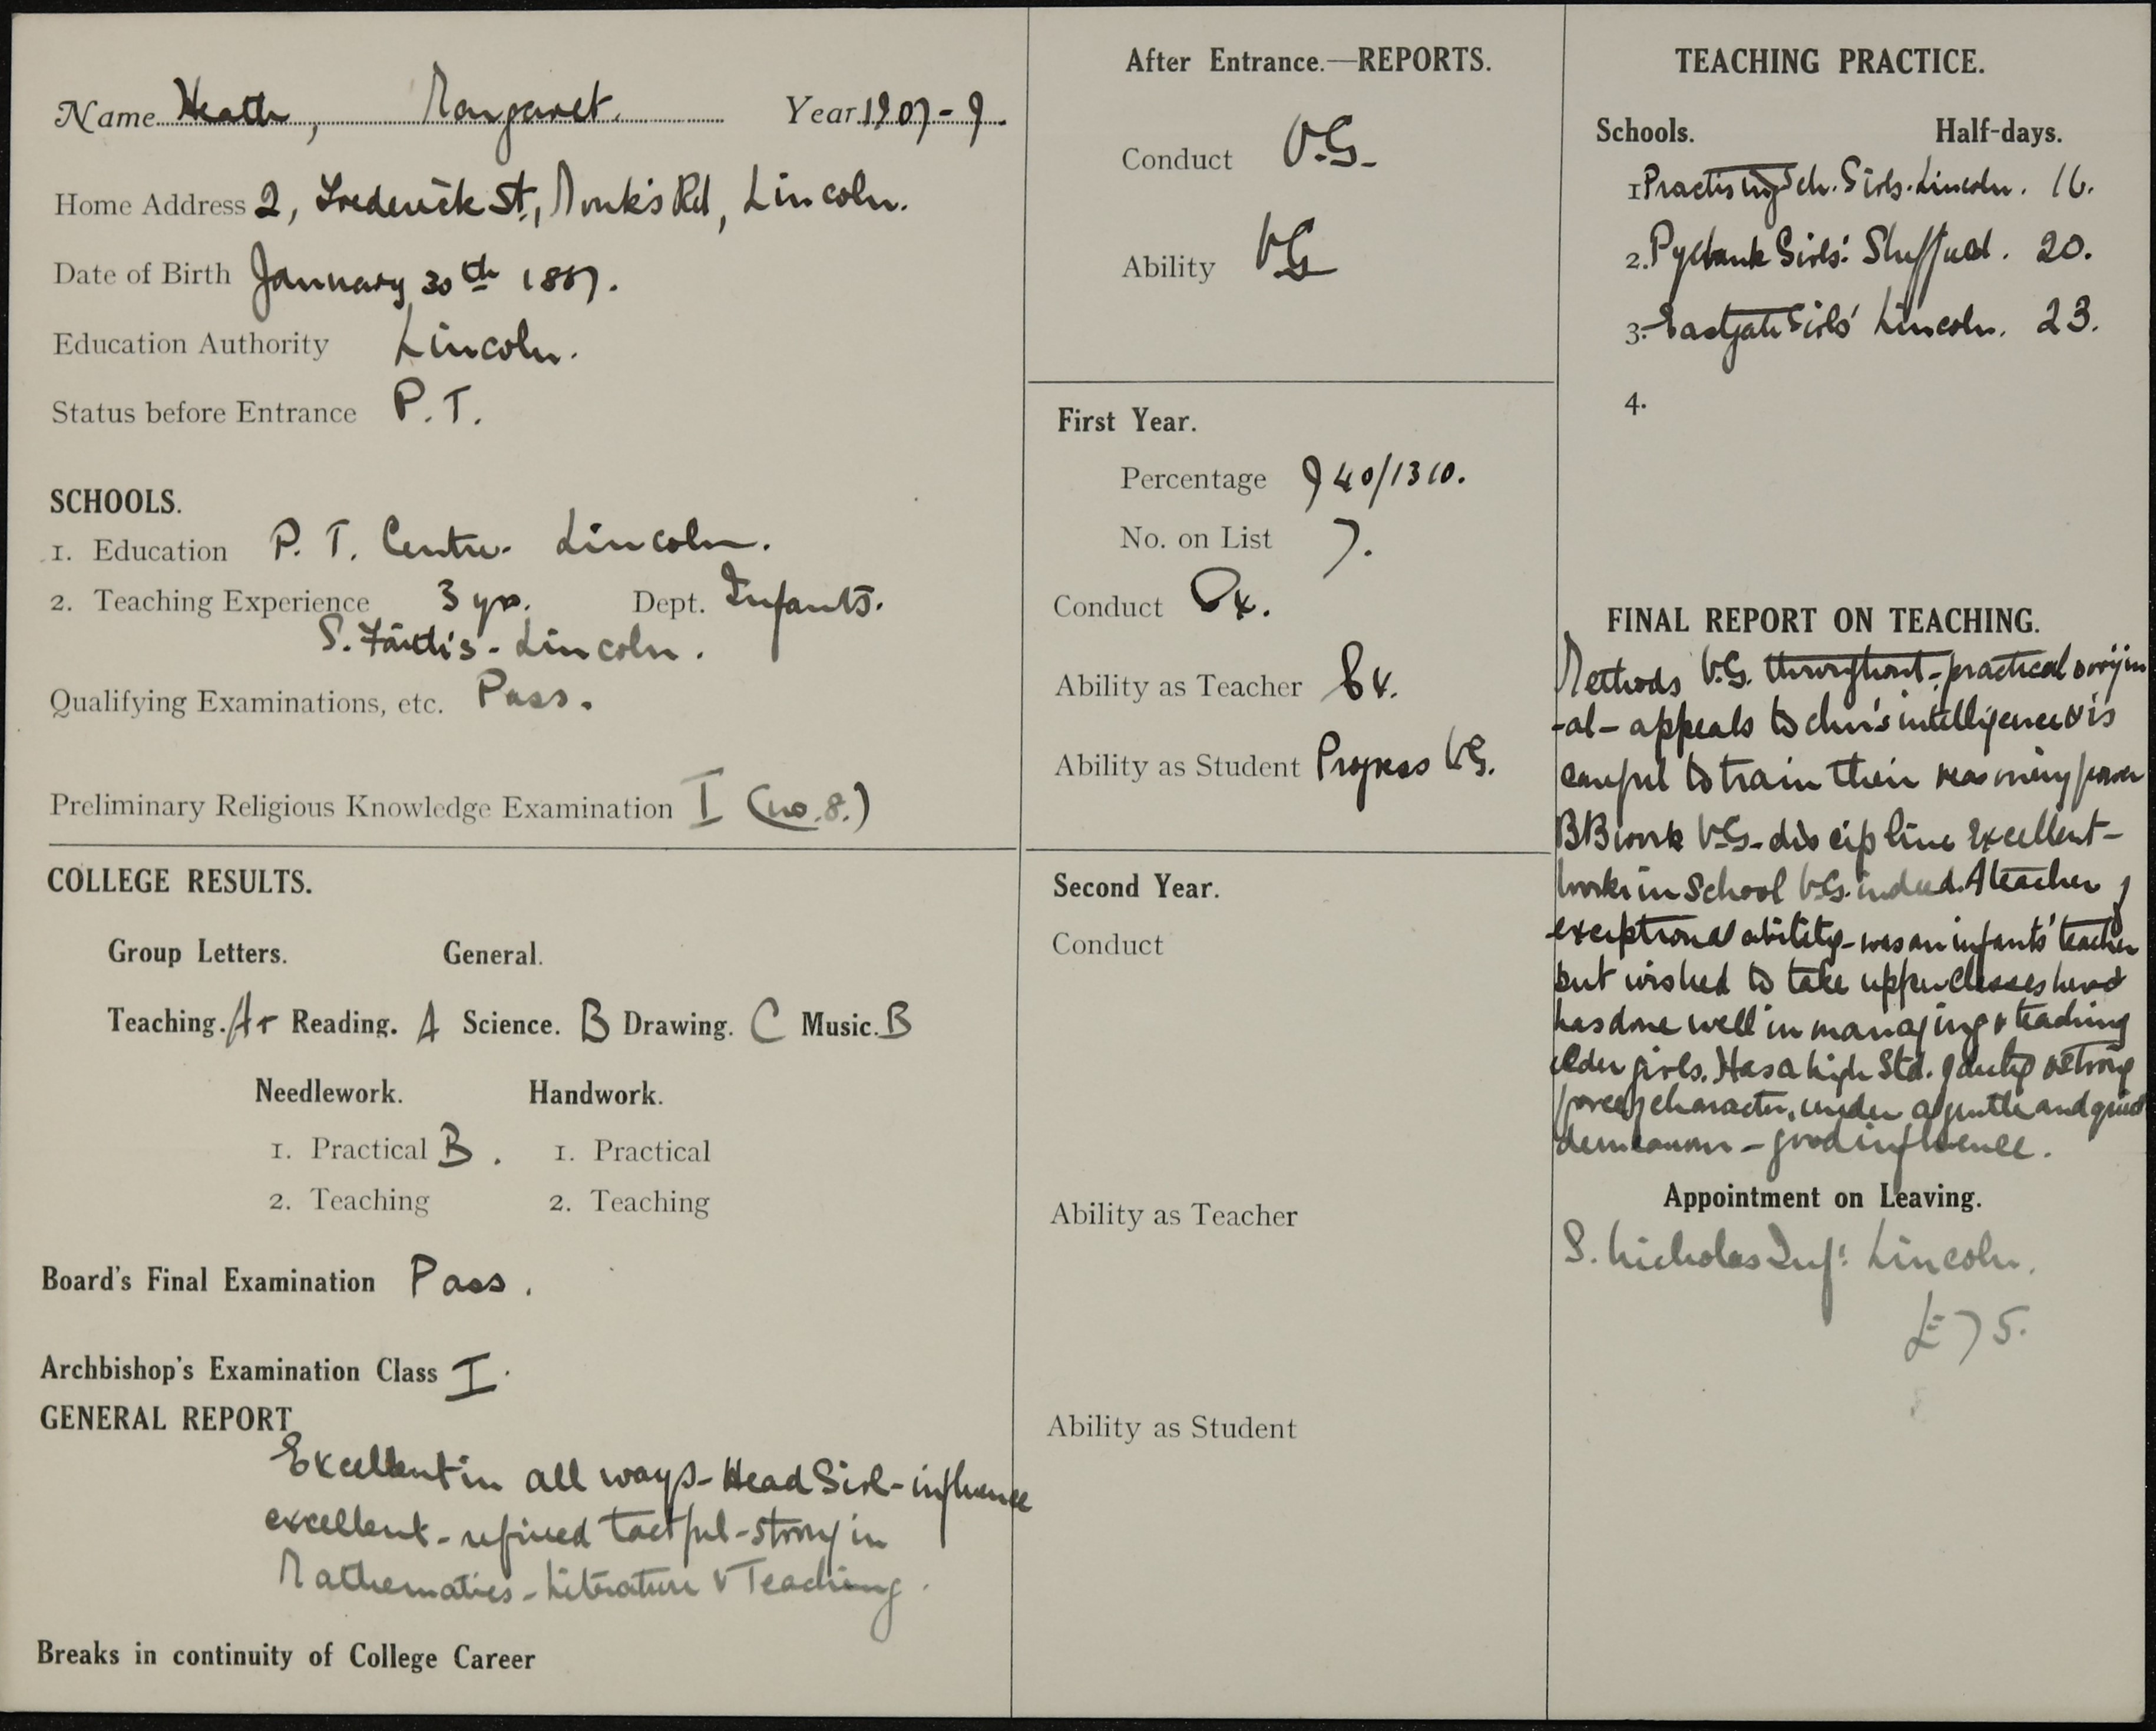 Name Heath, Margaret. Year 1907-9.
Home Address 2, Frederick St., Monk's Rd, Lincoln.
Date of Birth January 30th 1887.
Education Authority Lincoln.
Status before Entrance P.T.
SCHOOLS.
1. Education P. T. Centre. Lincoln.
2. Teaching Experience 3 yrs. Dept. Infants.
S. Faith's - Lincoln.
Qualifying Examinations, etc. Pass.
Preliminary Religious Knowledge Examination I (no. 8.)
COLLEGE RESULTS.
Group Letters. General.
Teaching. A+ Reading. A Science. B Drawing. C Music. B
Needlework. Handwork.
1. Practical B. 1. Practical
2. Teaching 2. Teaching
Board's Final Examination Pass.
Archbishop's Examination Class I.
GENERAL REPORT
Excellent in all ways - Head Girl - influence
excellent - refined tactful - strong in
Mathematics - Literature & Teaching.
Breaks in continuity of College Career
After Entrance.—REPORTS.
Conduct V.G.
Ability VG
First Year.
Percentage 940/1310.
No. on List 7.
Conduct Ex.
Ability as Teacher Ex.
Ability as Student Progress V.G.
Second Year.
Conduct
Ability as Teacher
Ability as Student
TEACHING PRACTICE.
Schools. Half-days.
1. Practising Sch. Girls. Lincoln. 16.
2. Pyebank Girls' Sheffield. 20.
3. Eastgate Girls' Lincoln. 23.
4.
FINAL REPORT ON TEACHING.
Methods V.G. throughout - practical origin
-al - appeals to chn's intelligence & is
careful to train their reasoning power
BB work V.G. - discipline Excellent -
works in School V.G. indeed. A teacher of
exceptional ability - was an infants' teacher
but wished to take upper classes here &
has done well in managing & teaching
older girls. Has a high Std. of duty & strong
force of character, under a gentle and quiet
demeanour - good influence.
Appointment on Leaving.
S. Nicholas Inf: Lincoln.
£75.